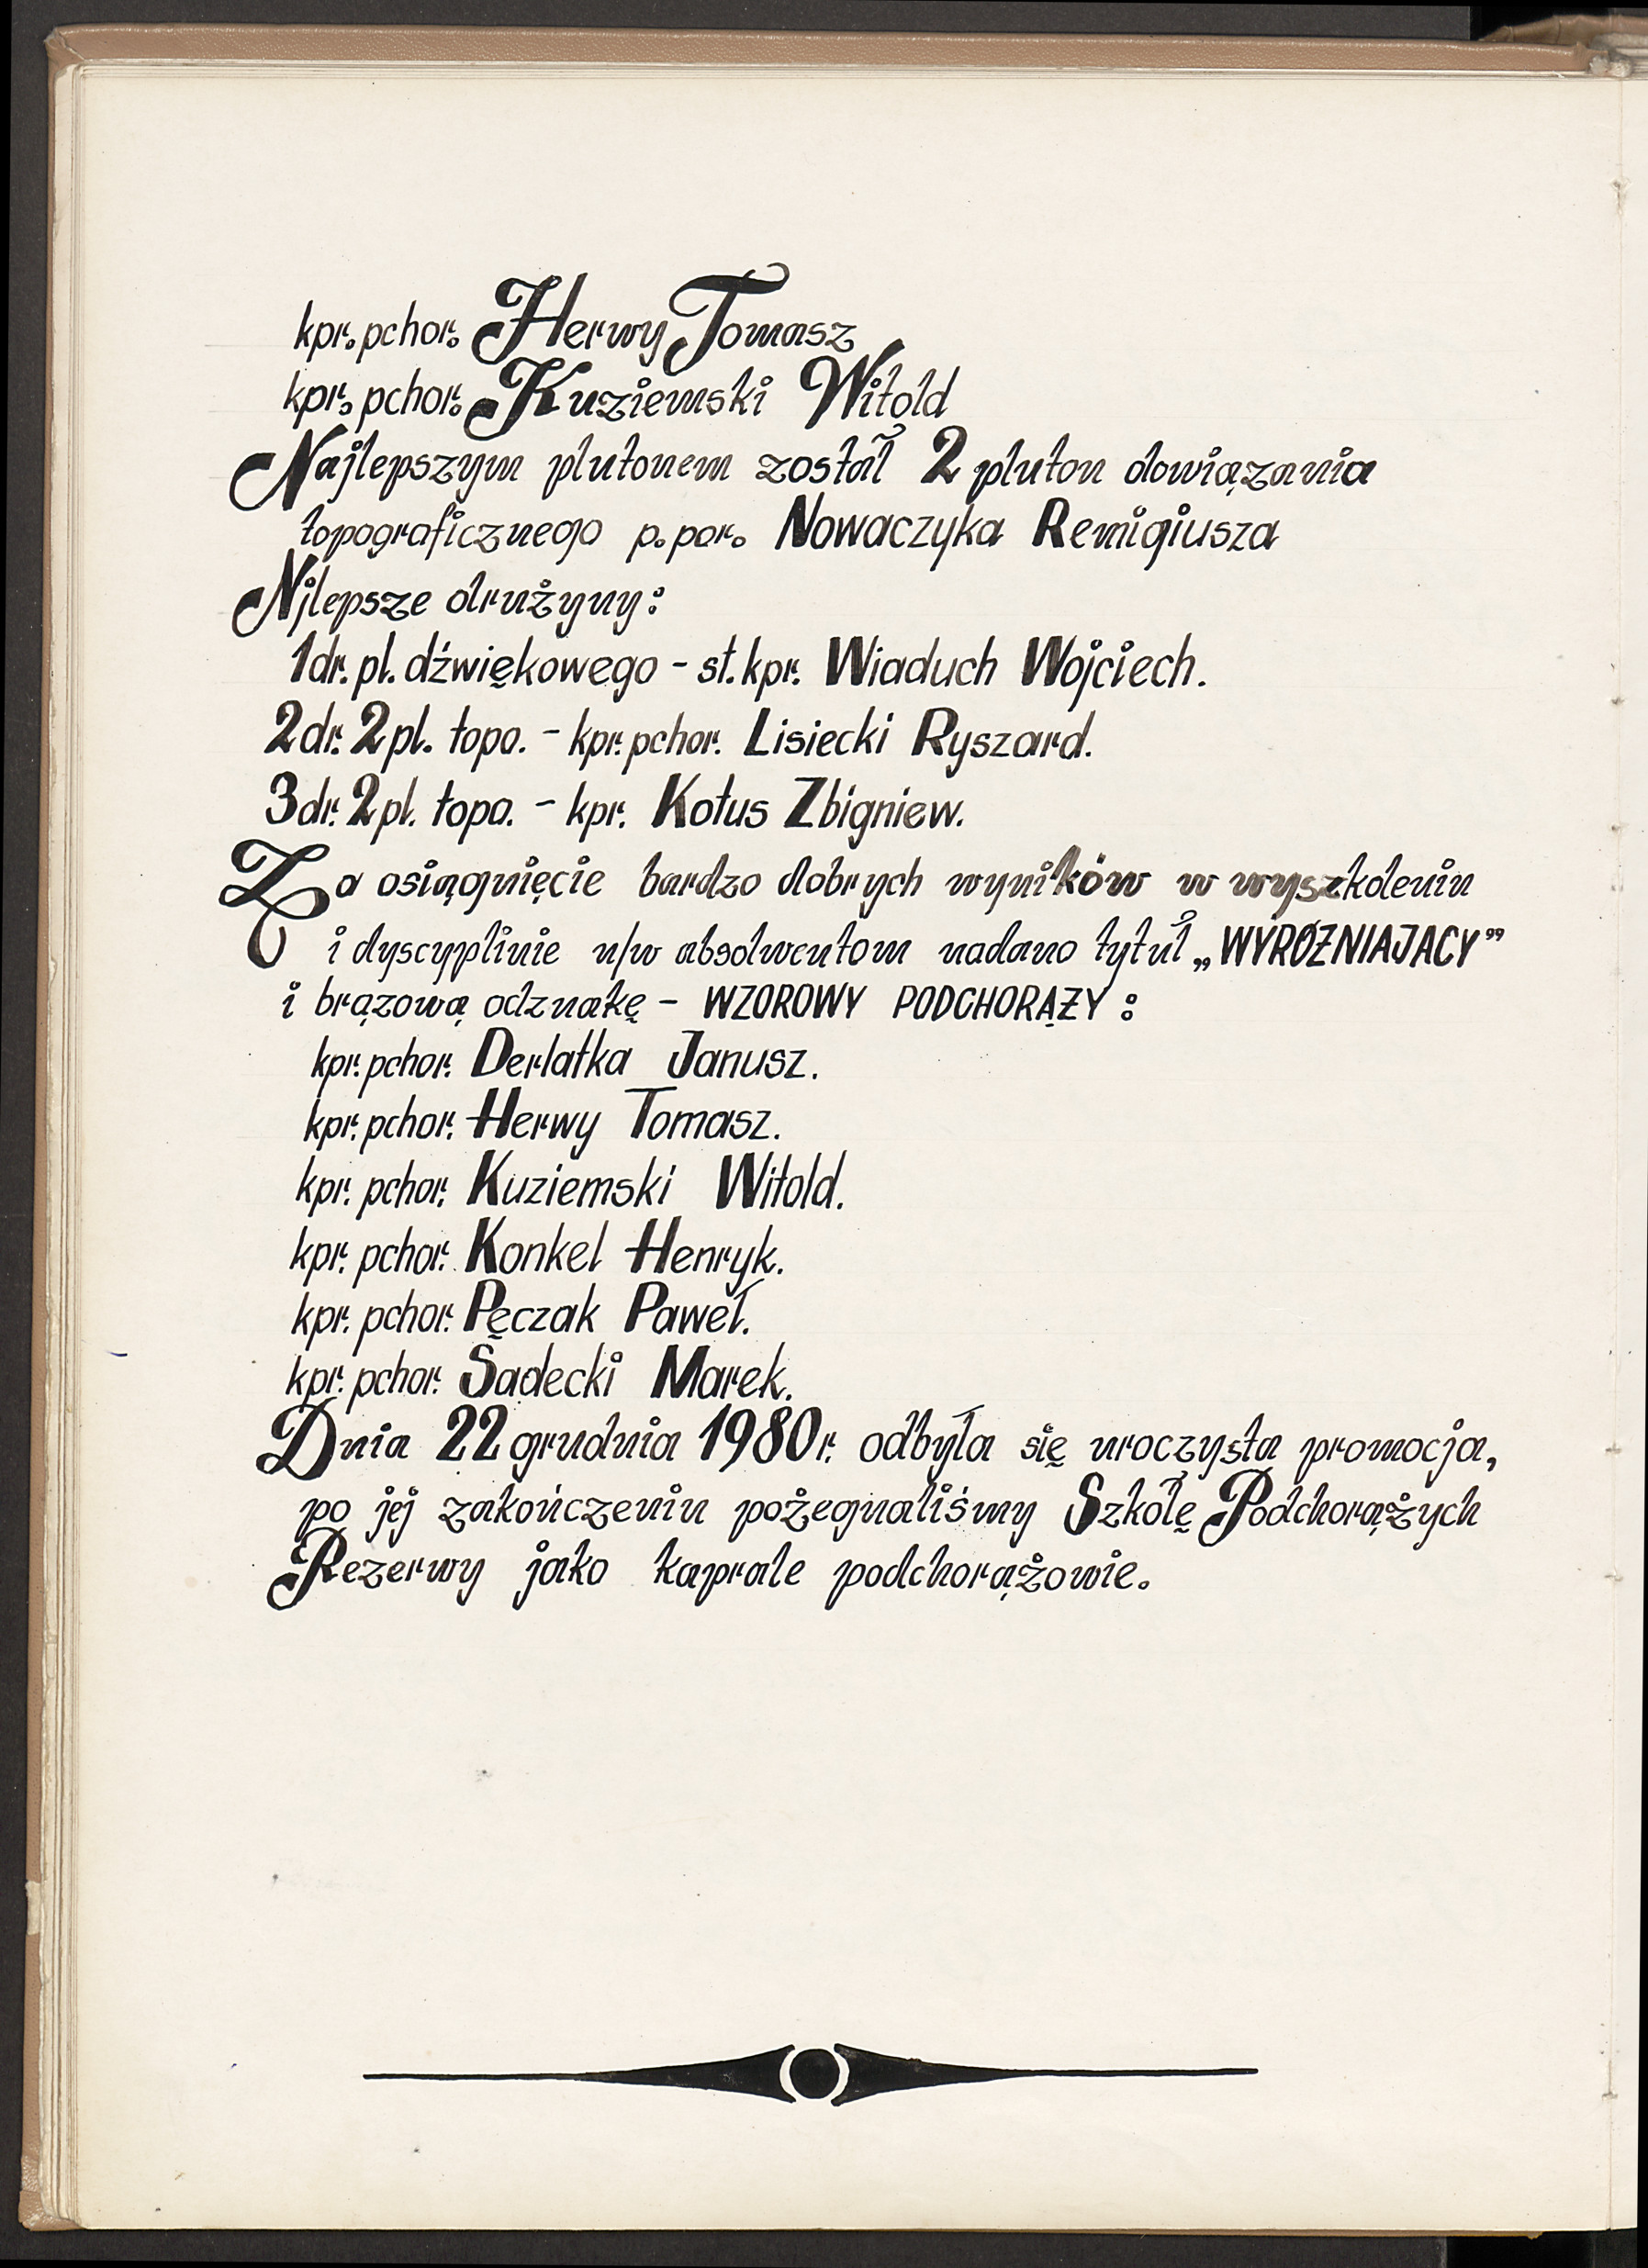 kpr. pchor. Herwy Tomasz
kpr. pchor. Kuziemski Witold
Najlepszym plutonem został 2 pluton dowiązania
topograficznego p.por. Nowaczyka Remigiusza
Njlepsze drużyny:
1dr. pl. dźwiękowego - st. kpr. Wiaduch Wojciech.
2dr. 2pl. topo. - kpr. pchor. Lisiecki Ryszard.
3dr. 2pl. topo. - kpr. Kotus Zbigniew.
Za osiągnięcie bardzo dobrych wyników w wyszkoleniu
i dyscyplinie n/w absolwentom nadano tytuł „WYRÓŻNIAJACY”
i brązową odznakę - WZOROWY PODCHORĄŻY :
kpr. pchor. Derlatka Janusz.
kpr. pchor. Herwy Tomasz.
kpr. pchor. Kuziemski Witold.
kpr. pchor. Konkel Henryk.
kpr. pchor. Pęczak Paweł.
kpr. pchor. Sadecki Marek.
Dnia 22 grudnia 1980r. odbyła się uroczysta promocja,
po jej zakończeniu pożegnaliśmy Szkołę Podchorążych
Rezerwy jako kaprale podchorążowie.